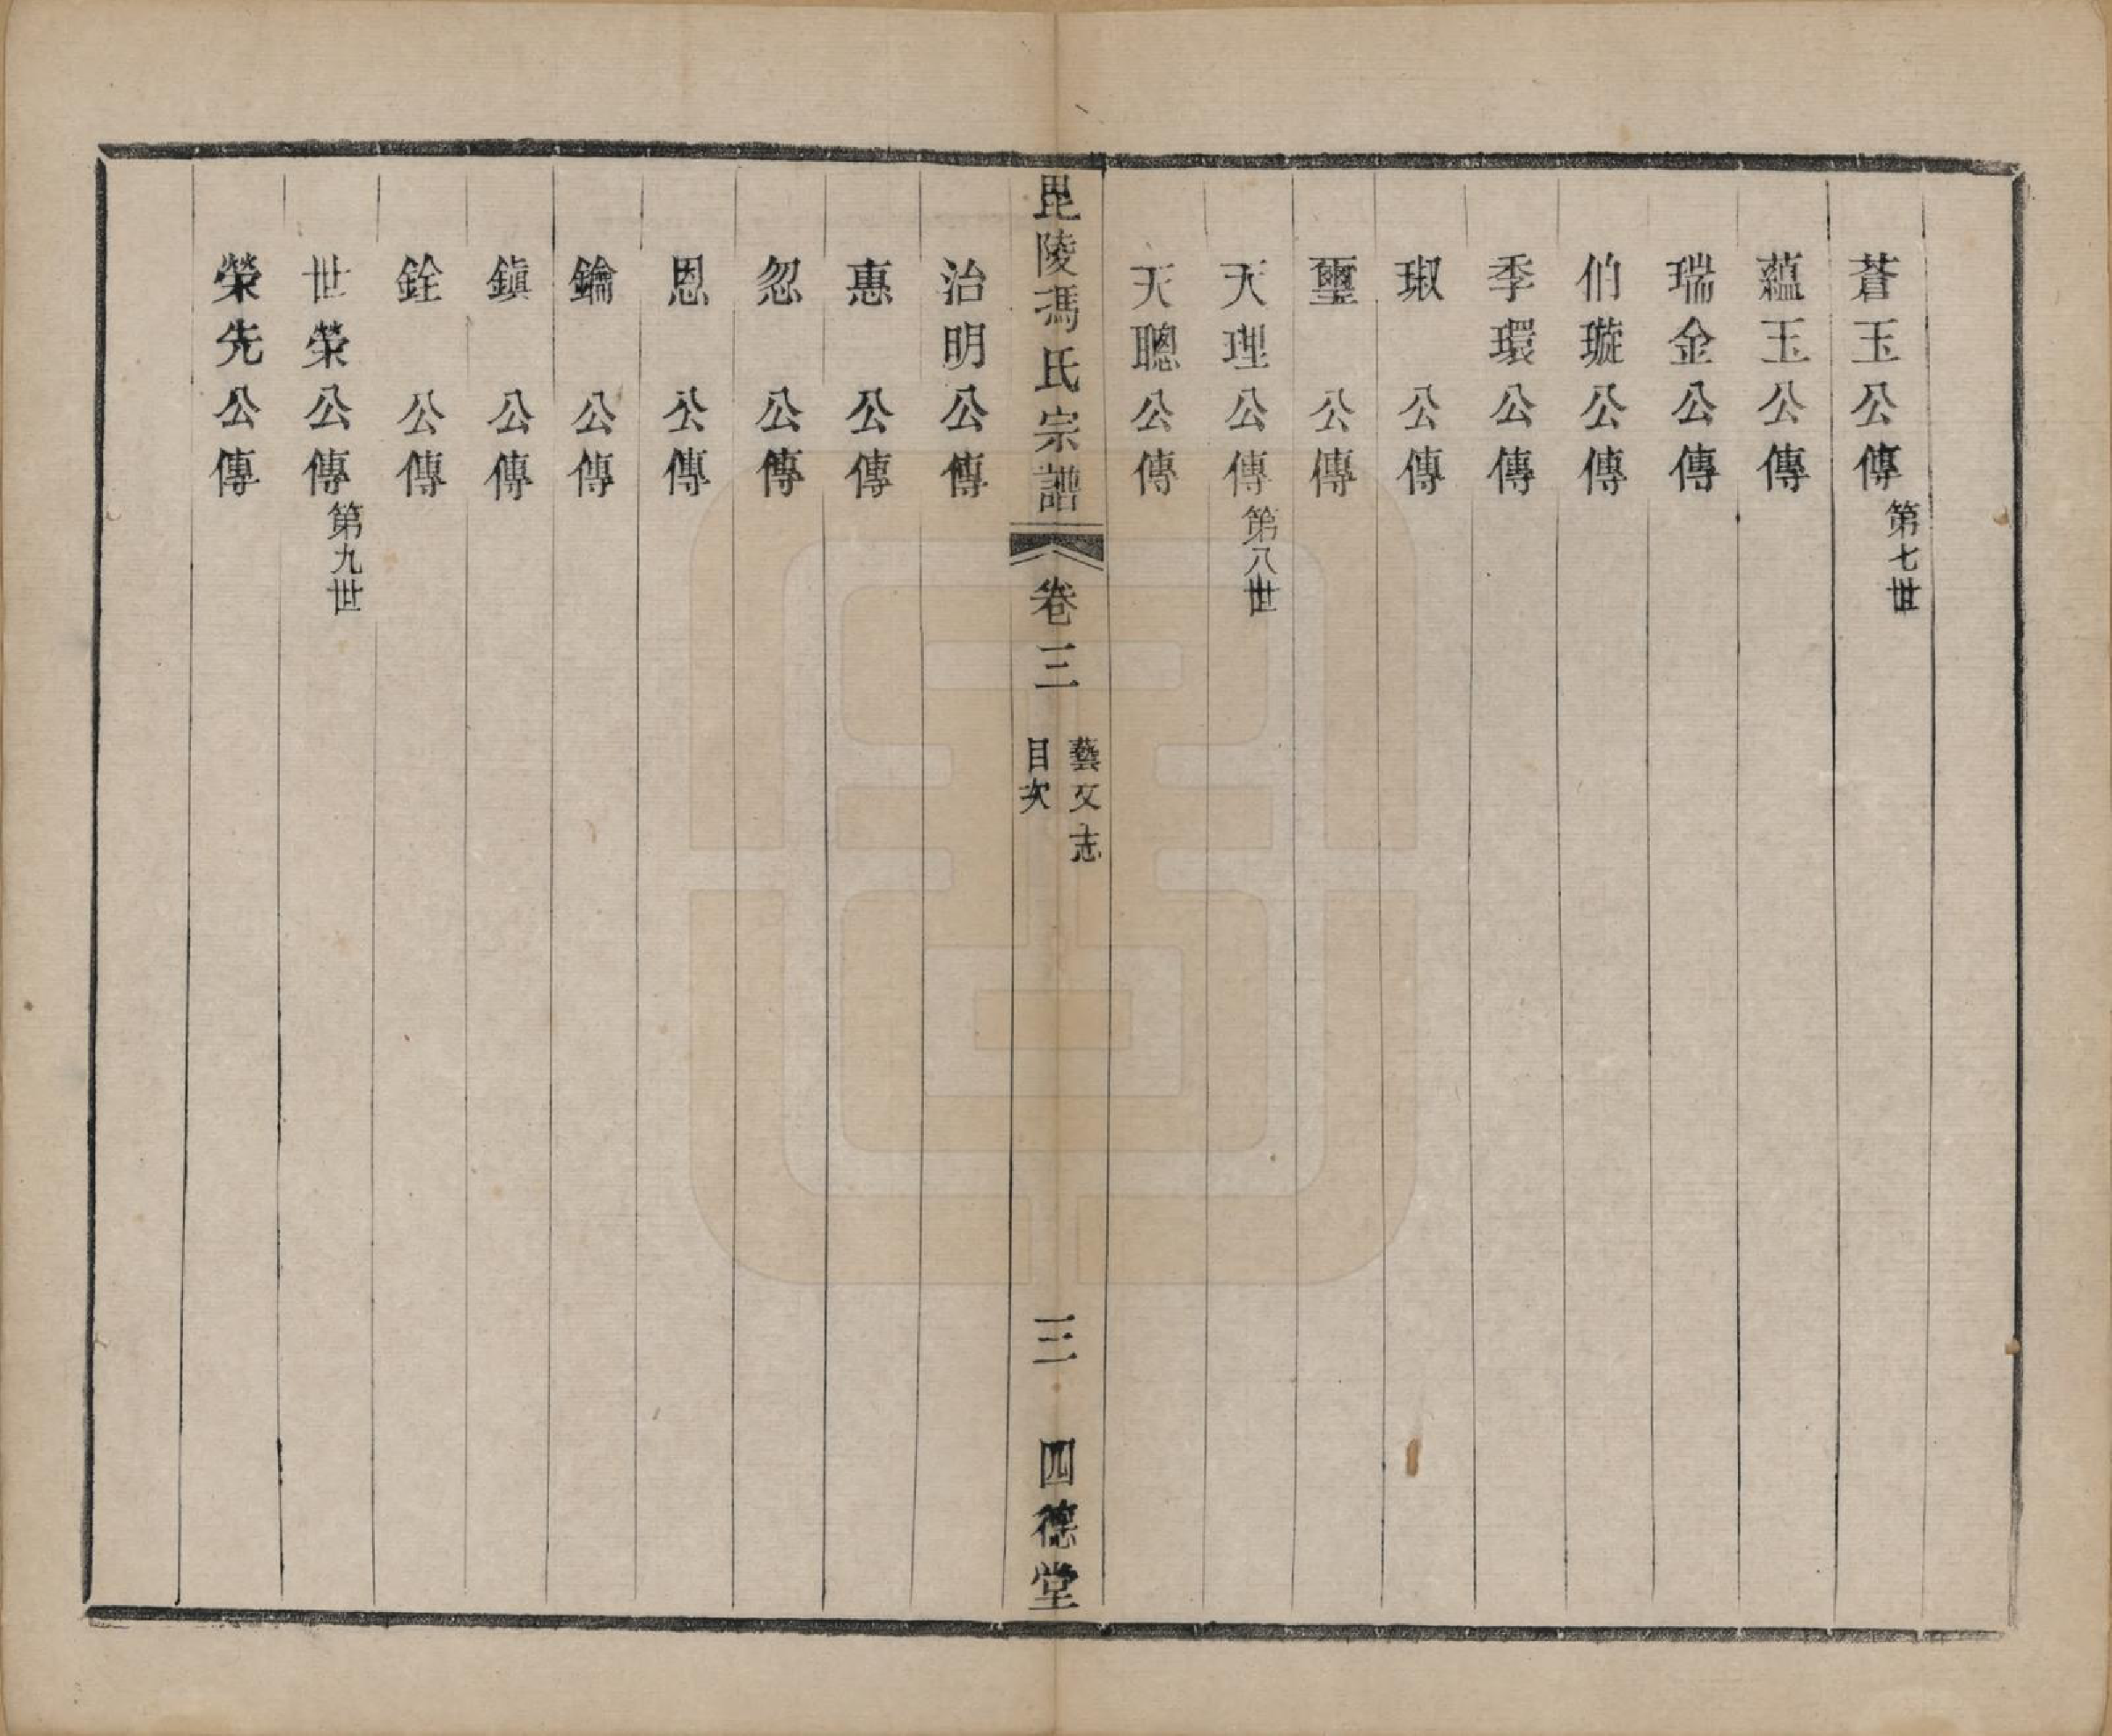 蒼玉公傳第七世
蘊玉公傳
瑞金公傳
伯璇公傳
季環公傳
琡公傳
璽公傳
天理公傳第八世
天聰公傳
毘陵馮氏宗譜 卷三 藝文志目次 三 四德堂
治明公傳
惠公傳
忽公傳
恩公傳
鑰公傳
鎮公傳
銓公傳
世榮公傳第九世
榮先公傳